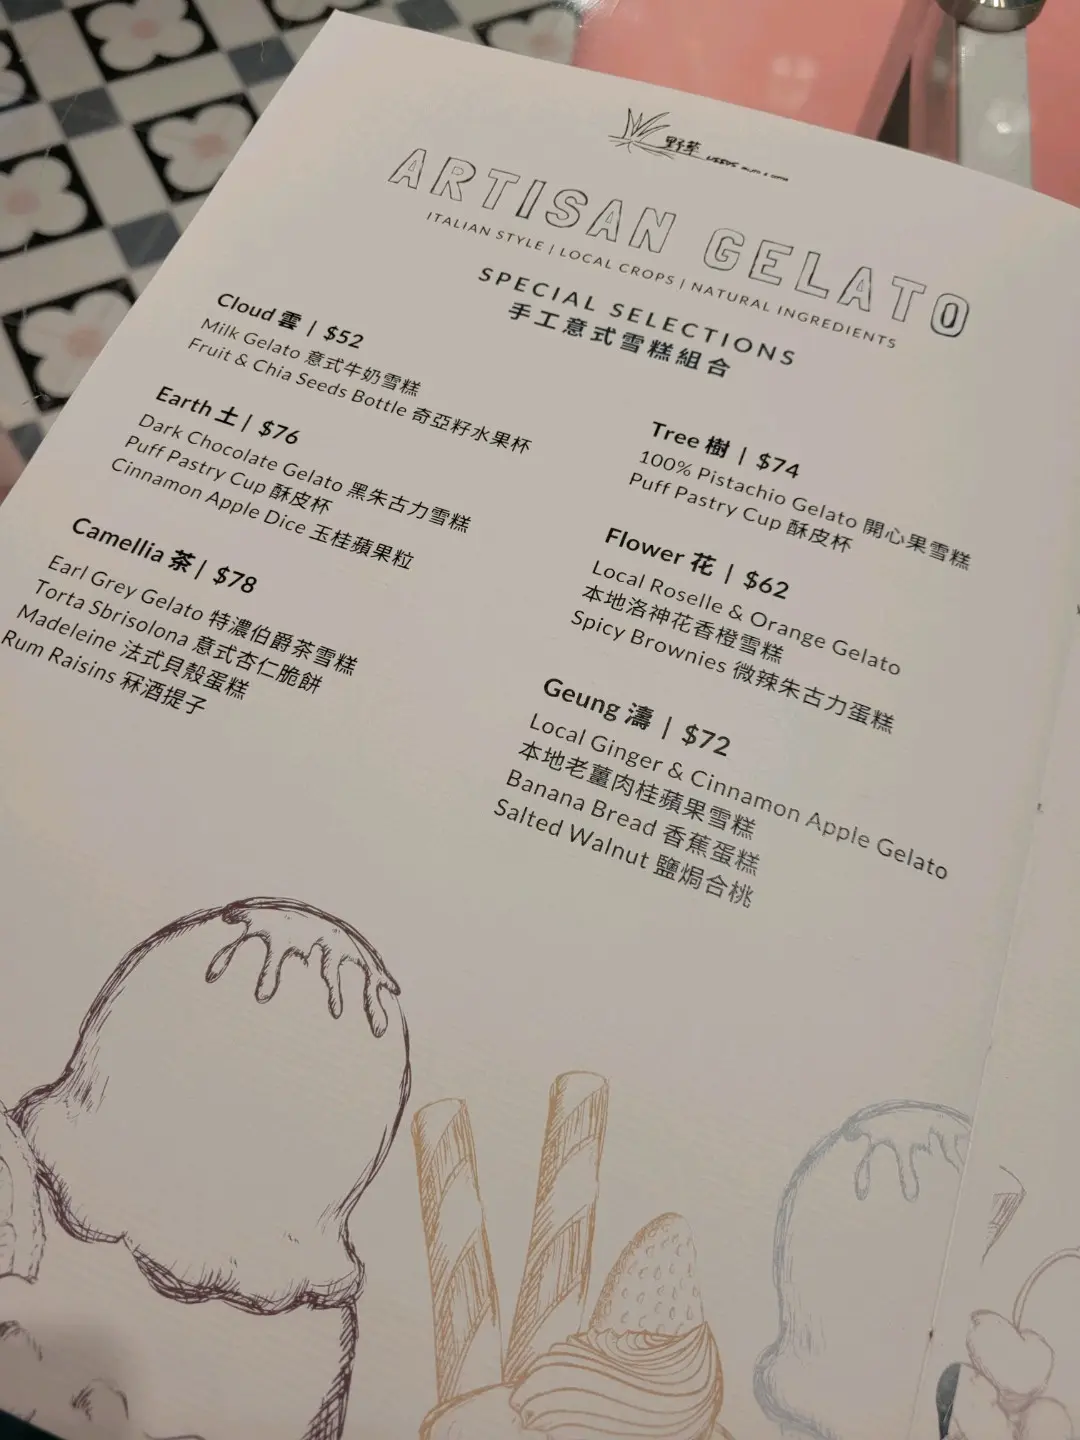 野草
ARTISAN GELATO
ITALIAN STYLE | LOCAL CROPS | NATURAL INGREDIENTS
SPECIAL SELECTIONS
手工意式雪糕組合
Cloud 雲 | $52
Milk Gelato 意式牛奶雪糕
Fruit & Chia Seeds Bottle 奇亞籽水果杯
Earth 土 | $76
Dark Chocolate Gelato 黑朱古力雪糕
Puff Pastry Cup 酥皮杯
Cinnamon Apple Dice 玉桂蘋果粒
Camellia 茶 | $78
Earl Grey Gelato 特濃伯爵茶雪糕
Torta Sbrisolona 意式杏仁脆餅
Madeleine 法式貝殼蛋糕
Rum Raisins 冧酒提子
Tree 樹 | $74
100% Pistachio Gelato 開心果雪糕
Puff Pastry Cup 酥皮杯
Flower 花 | $62
Local Roselle & Orange Gelato
本地洛神花香橙雪糕
Spicy Brownies 微辣朱古力蛋糕
Geung 濤 | $72
Local Ginger & Cinnamon Apple Gelato
本地老薑肉桂蘋果雪糕
Banana Bread 香蕉蛋糕
Salted Walnut 鹽焗合桃